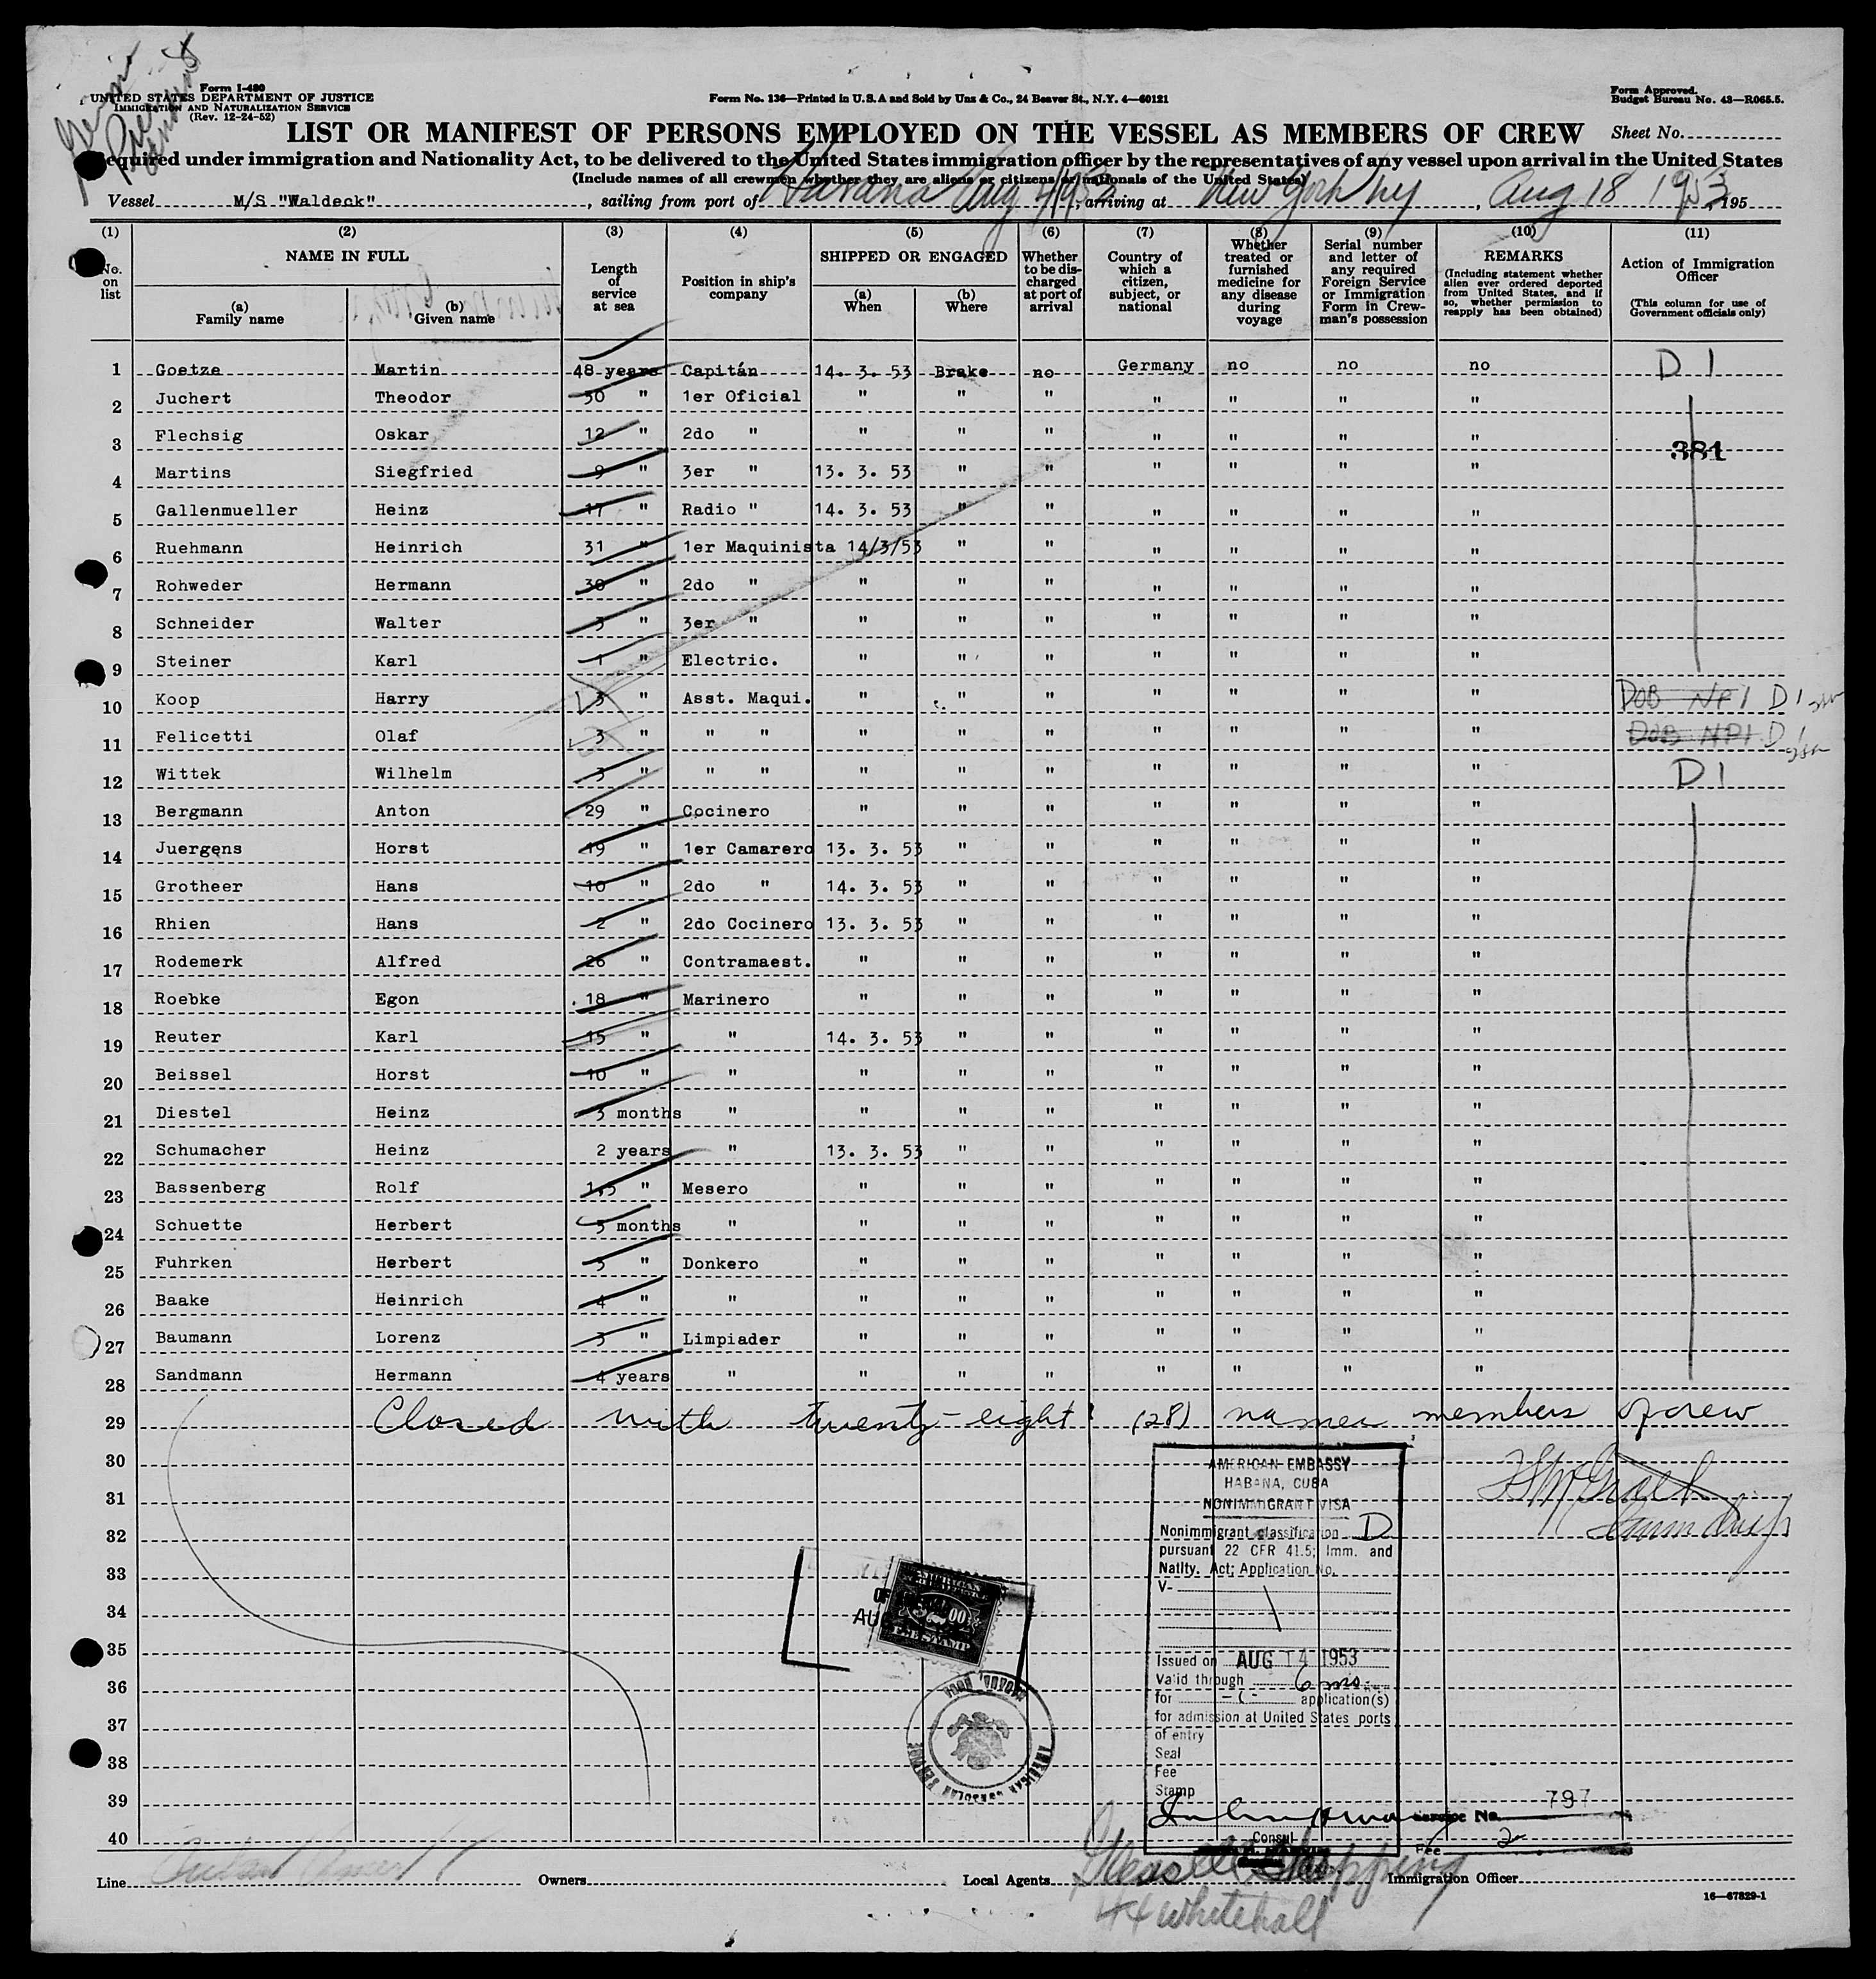 Form I-480
UNITED STATES DEPARTMENT OF JUSTICE
IMMIGRATION AND NATURALIZATION SERVICE
(Rev. 12-24-52)
Form No. 136—Printed in U.S.A and Sold by Unz & Co., 24 Beaver St., N.Y. 4—60121
Form Approved.
Budget Bureau No. 43—R065.5.
LIST OR MANIFEST OF PERSONS EMPLOYED ON THE VESSEL AS MEMBERS OF CREW
Sheet No.
Required under immigration and Nationality Act, to be delivered to the United States immigration officer by the representatives of any vessel upon arrival in the United States
(Include names of all crewmen whether they are aliens or citizens or nationals of the United States)
Vessel M/S "Waldeck", sailing from port of Havana Aug 1953, arriving at New York NY, Aug 18 1953, 195
(1) (2) (3) (4) (5) (6) (7) (8) (9) (10) (11)
No. on list
NAME IN FULL
(a) Family name
(b) Given name
Length of service at sea
Position in ship's company
SHIPPED OR ENGAGED
(a) When
(b) Where
Whether to be discharged at port of arrival
Country of which a citizen, subject, or national
Whether treated or furnished medicine for any disease during voyage
Serial number and letter of any required Foreign Service or Immigration Form in Crewman's possession
REMARKS
(Including statement whether alien ever ordered deported from United States, and if so, whether permission to reapply has been obtained)
Action of Immigration Officer
(This column for use of Government officials only)
1 Goetze Martin 48 years Capitán 14. 3. 53 Brake no Germany no no no D 1
2 Juchert Theodor 30 " 1er Oficial " " " " " " "
3 Flechsig Oskar 12 " 2do " " " " " " " " 381
4 Martins Siegfried 9 " 3er " 13. 3. 53 " " " " " "
5 Gallenmueller Heinz 17 " Radio " 14. 3. 53 " " " " " "
6 Ruehmann Heinrich 31 " 1er Maquinista 14/3/53 " " " " " "
7 Rohweder Hermann 30 " 2do " " " " " " " "
8 Schneider Walter 3 " 3er " " " " " " " "
9 Steiner Karl 1 " Electric. " " " " " " "
10 Koop Harry 3 " Asst. Maqui. " " " " " " " DOB NP1 D 1
11 Felicetti Olaf 3 " " " " " " " " " " DOB NP1 D 1
12 Wittek Wilhelm 3 " " " " " " " " " " D 1
13 Bergmann Anton 29 " Cocinero " " " " " " "
14 Juergens Horst 19 " 1er Camarero 13. 3. 53 " " " " " "
15 Grotheer Hans 10 " 2do " 14. 3. 53 " " " " " "
16 Rhien Hans 2 " 2do Cocinero 13. 3. 53 " " " " " "
17 Rodemerk Alfred 26 " Contramaest. " " " " " " "
18 Roebke Egon 18 " Marinero " " " " " " "
19 Reuter Karl 15 " " 14. 3. 53 " " " " " "
20 Beissel Horst 10 " " " " " " " " "
21 Diestel Heinz 3 months " " " " " " " "
22 Schumacher Heinz 2 years " 13. 3. 53 " " " " " "
23 Bassenberg Rolf 1,5 " Mesero " " " " " " "
24 Schuette Herbert 5 months " " " " " " " "
25 Fuhrken Herbert 3 " Donkero " " " " " " "
26 Baake Heinrich 4 " " " " " " " " "
27 Baumann Lorenz 3 " Limpiader " " " " " " "
28 Sandmann Hermann 4 years " " " " " " " "
29 Closed with twenty-eight (28) names members of crew
30
31
32
33
34
35
36
37
38
39
40
AMERICAN EMBASSY
HABANA, CUBA
NONIMMIGRANT VISA
Nonimmigrant classification D
pursuant 22 CFR 41.5; Imm. and
Natlty. Act; Application No.
V-
Issued on AUG 14 1953
Valid through 6 mos.
for -1- application(s)
for admission at United States ports
of entry
Seal
Fee
Stamp
Consul
Service No. 797
Fee 2
AMERICAN
FEE STAMP
AUG
Line
Owners
Local Agents Shipping
44 Whitehall
Immigration Officer
16—67829-1